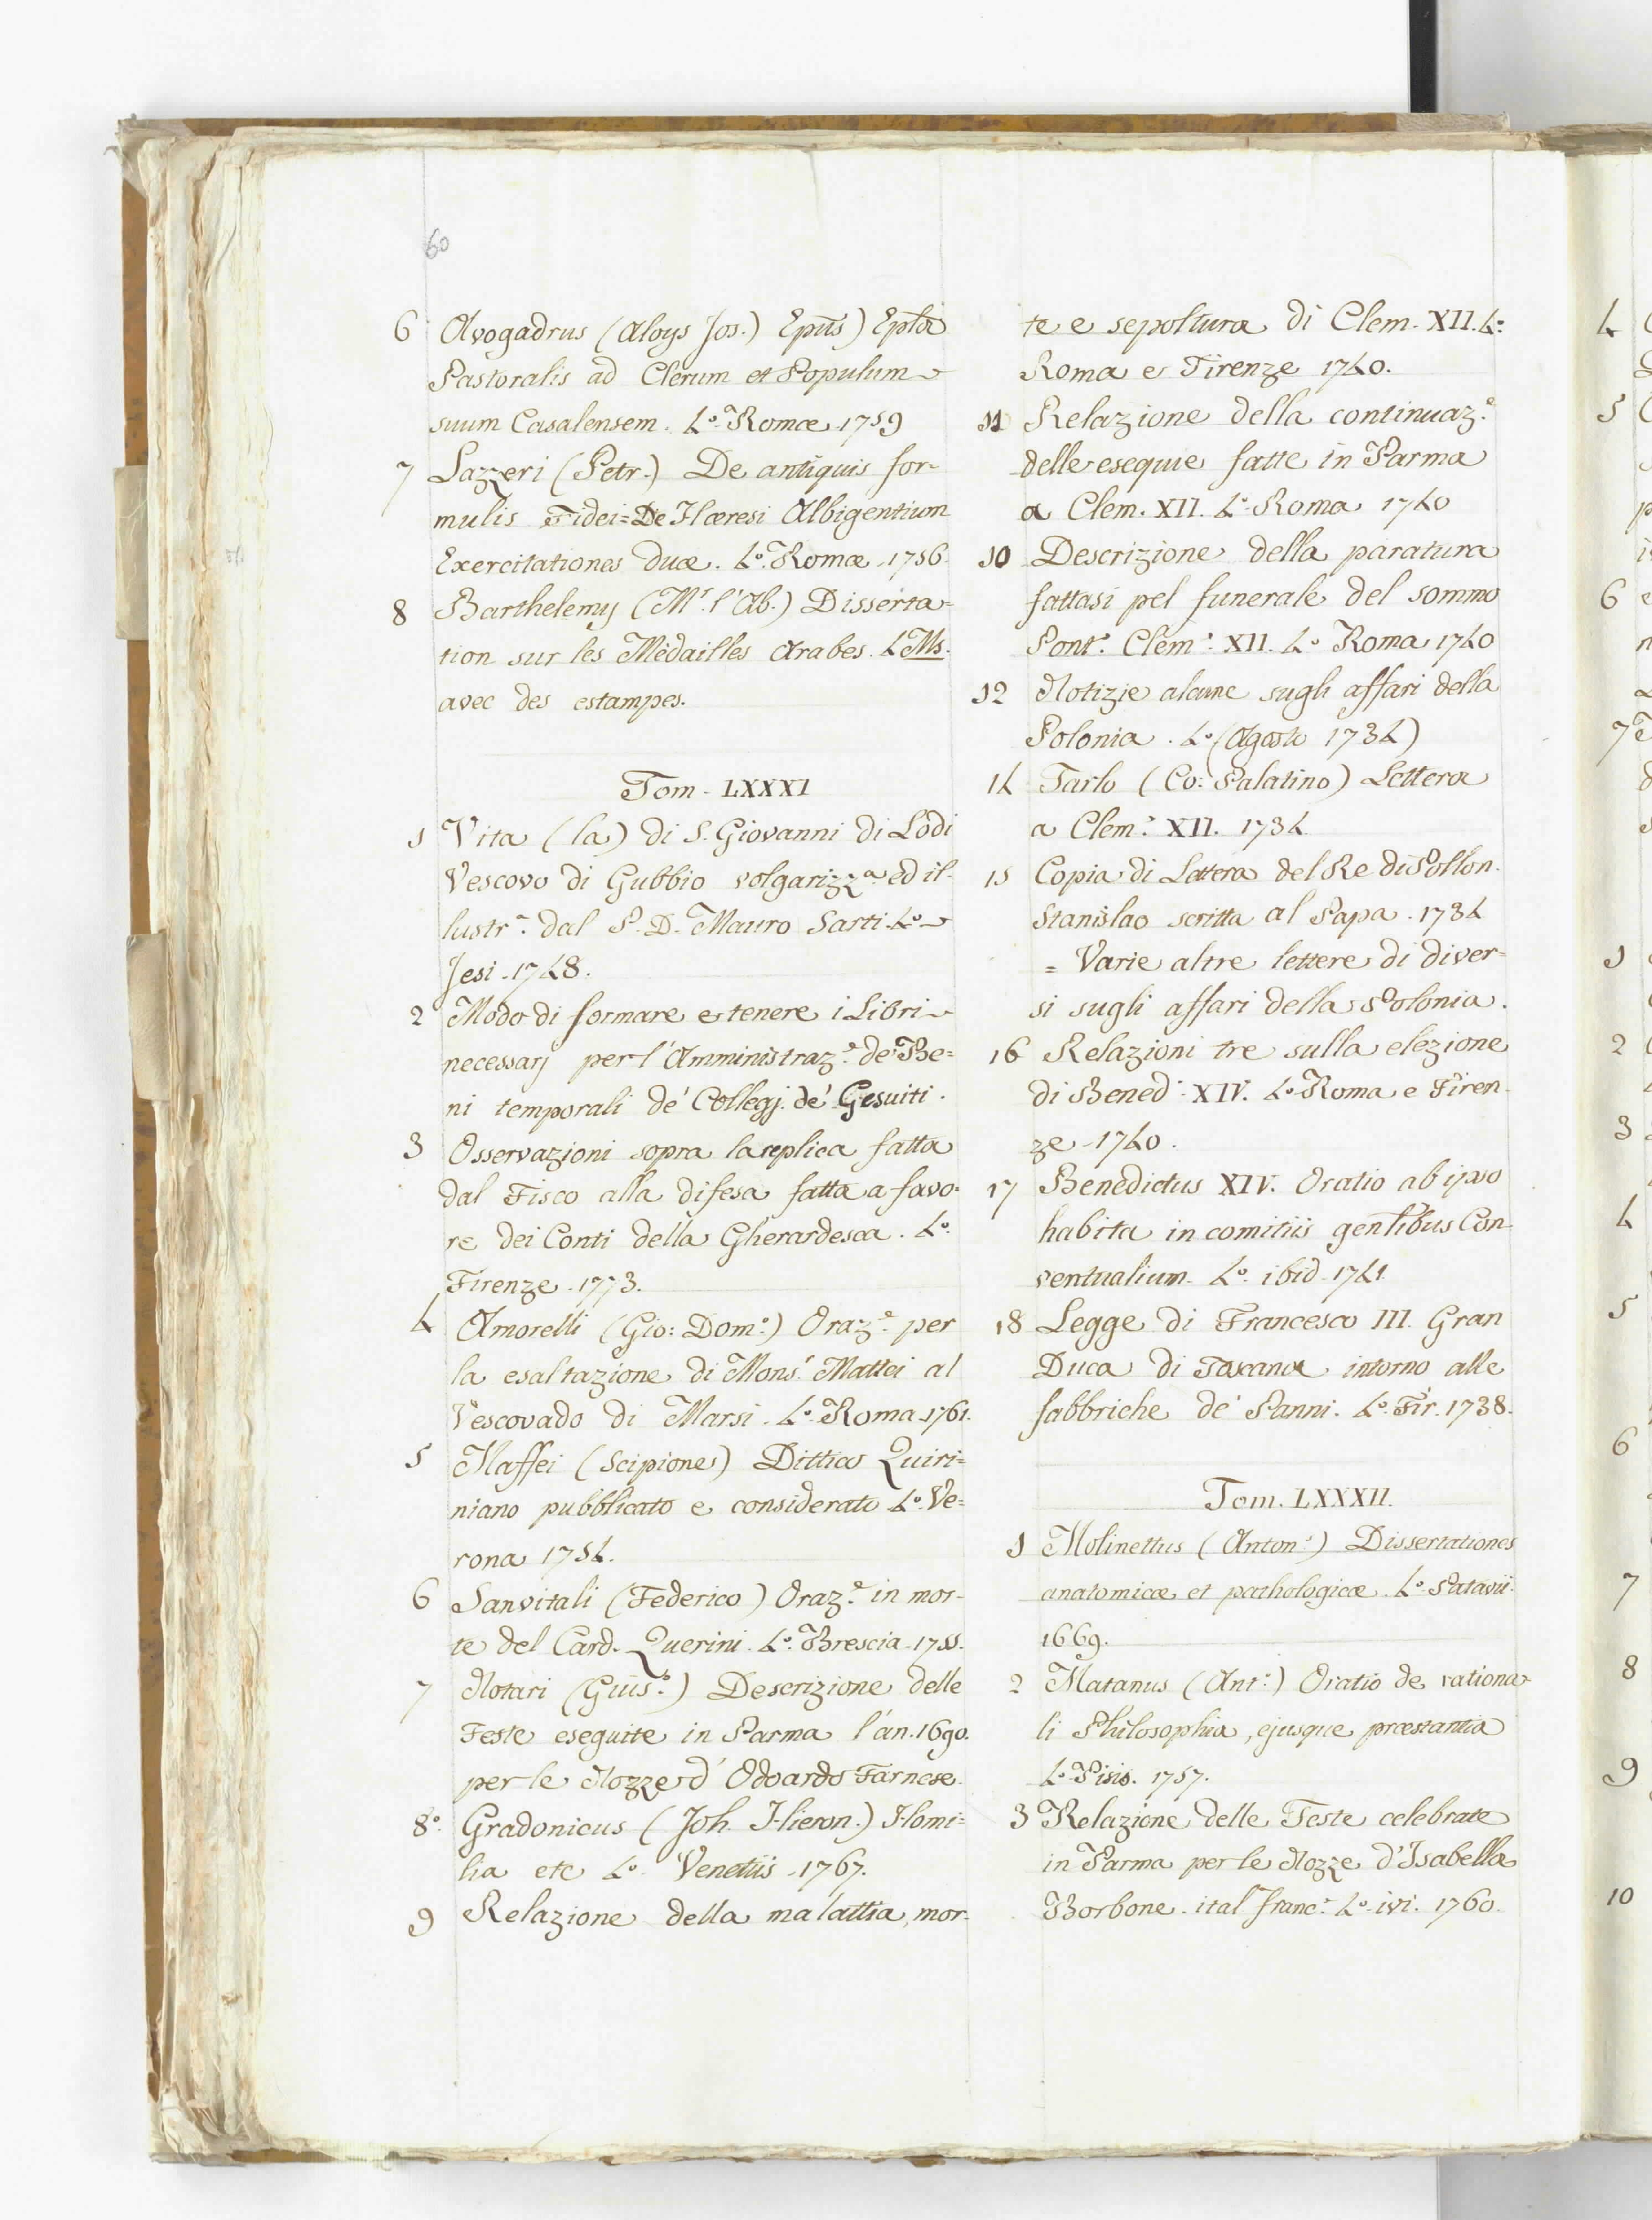 60
6 Avogadrus (Aloys Jos.) Epũs) Epl̃a
Pastoralis ad Clerum et Populum
suum Casalensem. 4.º Romæ 1759
7 Lazzeri (Petr.) De antiquis for-
mulis Fidei = De Hæresi Albigentium
Exercitationes duæ. 4.º Romæ 1756.
8 Barthelemy (M.r l'Ab.) Disserta-
tion sur les Médailles Arabes. 4 Ms.
avec des estampes.
Tom. LXXXI
1 Vita (la) di S. Giovanni di Lodi
Vescovo di Gubbio volgarizz.a ed il-
lustr.a dal P. D. Mauro Sarti 4.º
Jesi 1748.
2 Modo di formare e tenere i Libri
necessarj per l'Amministraz.e de' Be=
ni temporali de' Collegj de' Gesuiti.
3 Osservazioni sopra la replica fatta
dal Fisco alla difesa fatta a favo-
re dei Conti della Gherardesca. 4.º
Firenze 1773.
4 Amorelli (Gio: Dom.º) Oraz.e per
la esaltazione di Mons.r Mattei al
Vescovado di Marsi. 4.º Roma 1761.
5 Maffei (Scipione) Dittico Quiri=
niano pubblicato e considerato 4.º Ve=
rona 1754.
6 Sanvitali (Federico) Oraz.e in mor-
te del Card. Querini. 4.º Brescia 1755.
7 Notari (Gius.e) Descrizione delle
Feste eseguite in Parma l'an. 1690.
per le Nozze d'Odoardo Farnese.
8º. Gradonicus (Joh. Hieron.) Homi=
lia etc 4.º Venetiis 1767.
9 Relazione della malattia, mor-
te e sepoltura di Clem. XII. 4.º
Roma e Firenze 1740.
11 Relazione della continuaz.e
delle esequie fatte in Parma
a Clem. XII. 4.º Roma 1740
10 Descrizione della paratura
fattasi pel funerale del sommo
Pont.e Clem.e XII. 4.º Roma 1740
12 Notizie alcune sugli affari della
Polonia. 4.º (Agosto 1734)
14 Tarlo (Co: Palatino) Lettera
a Clem.e XII. 1734
15 Copia di Lettera del Re di Pollon.
Stanislao scritta al Papa. 1734
= Varie altre lettere di diver=
si sugli affari della Polonia.
16 Relazioni tre sulla elezione
di Bened.º XIV. 4.º Roma e Firen-
ze 1740.
17 Benedictus XIV. Oratio ab ipso
habita in comitiis gen̄libus Con-
ventualium. 4.º ibid. 1741.
18 Legge di Francesco III. Gran
Duca di Toscana intorno alle
fabbriche de' Panni. 4.º Fir. 1738.
Tom. LXXXII.
1 Molinettus (Anton.s) Dissertationes
anatomicæ et pathologicæ. 4.º Patavii
1669.
2 Matanus (Ant.s) Oratio de rationa-
li Philosophia, ejusque præstantia
4.º Pisis. 1757.
3 Relazione delle Feste celebrate
in Parma per le Nozze d'Isabella
Borbone. ital franc.e 4.º ivi. 1760.
4
5
6
7
1
2
3
4
5
6
7
8
9
10